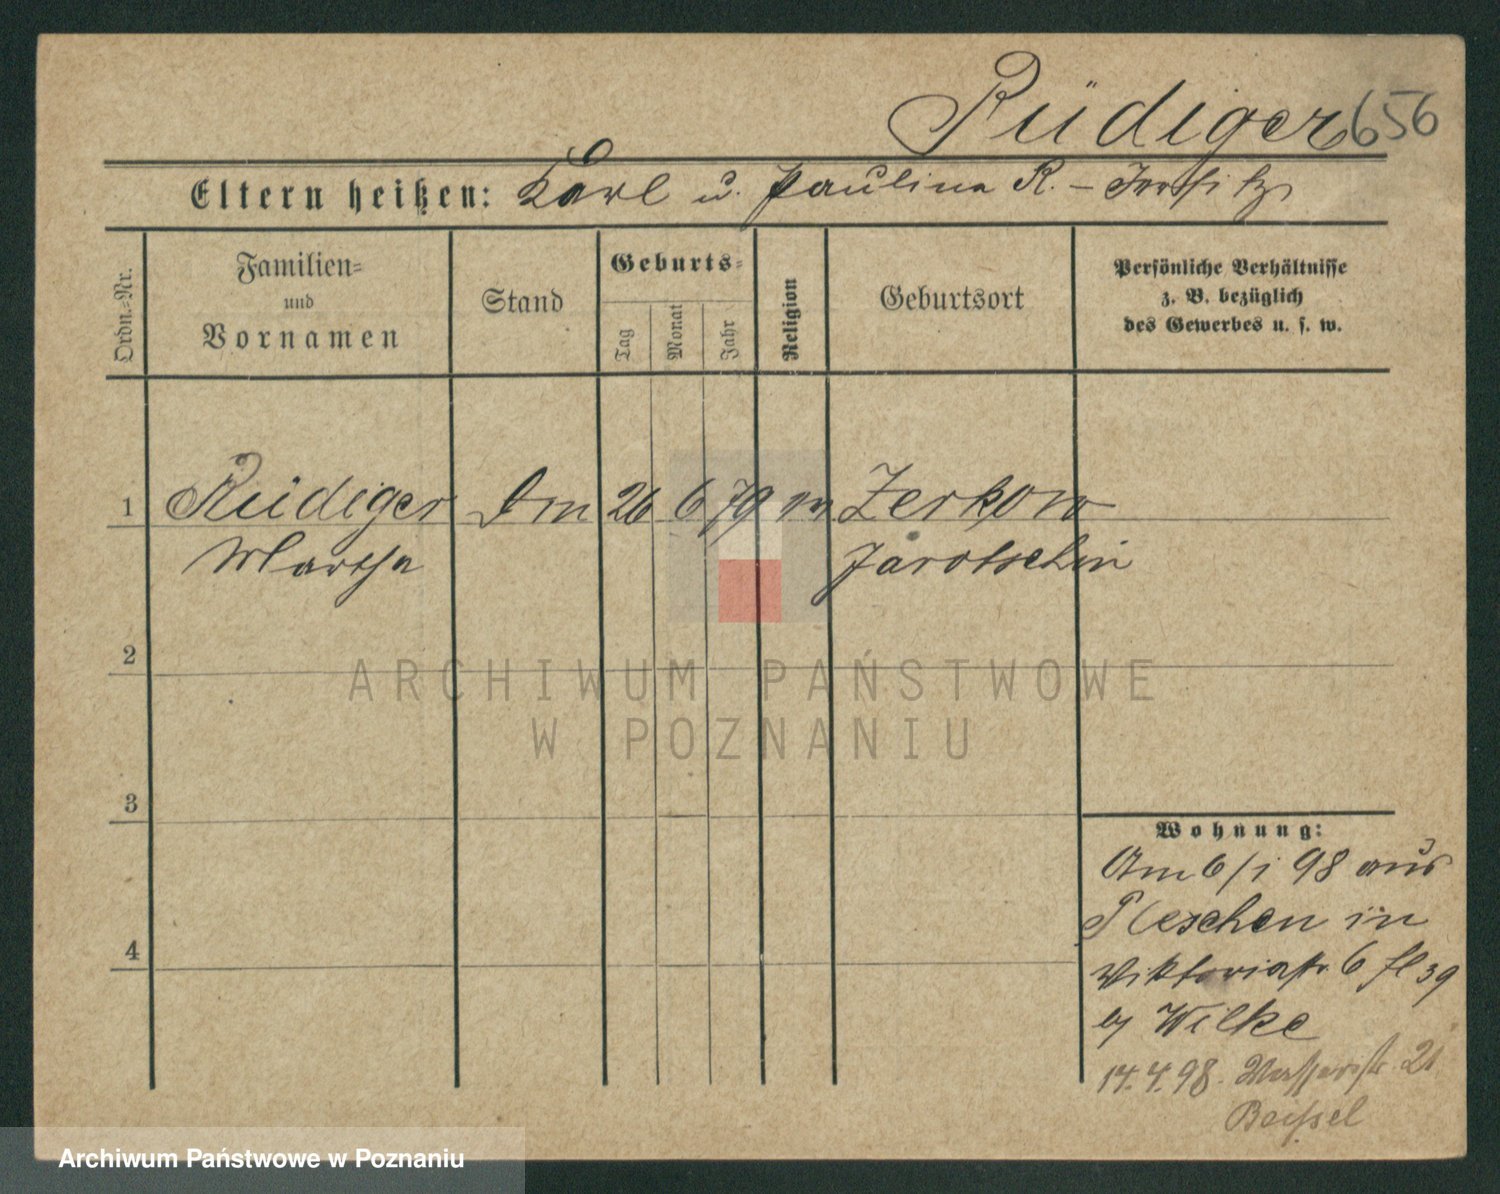 Rüdiger 656
Eltern heißen: Karl u. Paulina R. –
Ordn.=Nr.
Familien=
und
Vornamen
Stand
Geburts=
Tag
Monat
Jahr
Religion
Geburtsort
Persönliche Verhältnisse
z. B. bezüglich
des Gewerbes u. s. w.
1 Rüdiger 26 6 79 Zerkow
Martha Jarotschin
2
3
4
Wohnung:
Am 6/1 98 aus
Pleschen in
Viktoriastr 6 fl 39
bj Wilke
14.4.98. Wasserstr 21
Beissel
ARCHIWUM PAŃSTWOWE
W POZNANIU
Archiwum Państwowe w Poznaniu